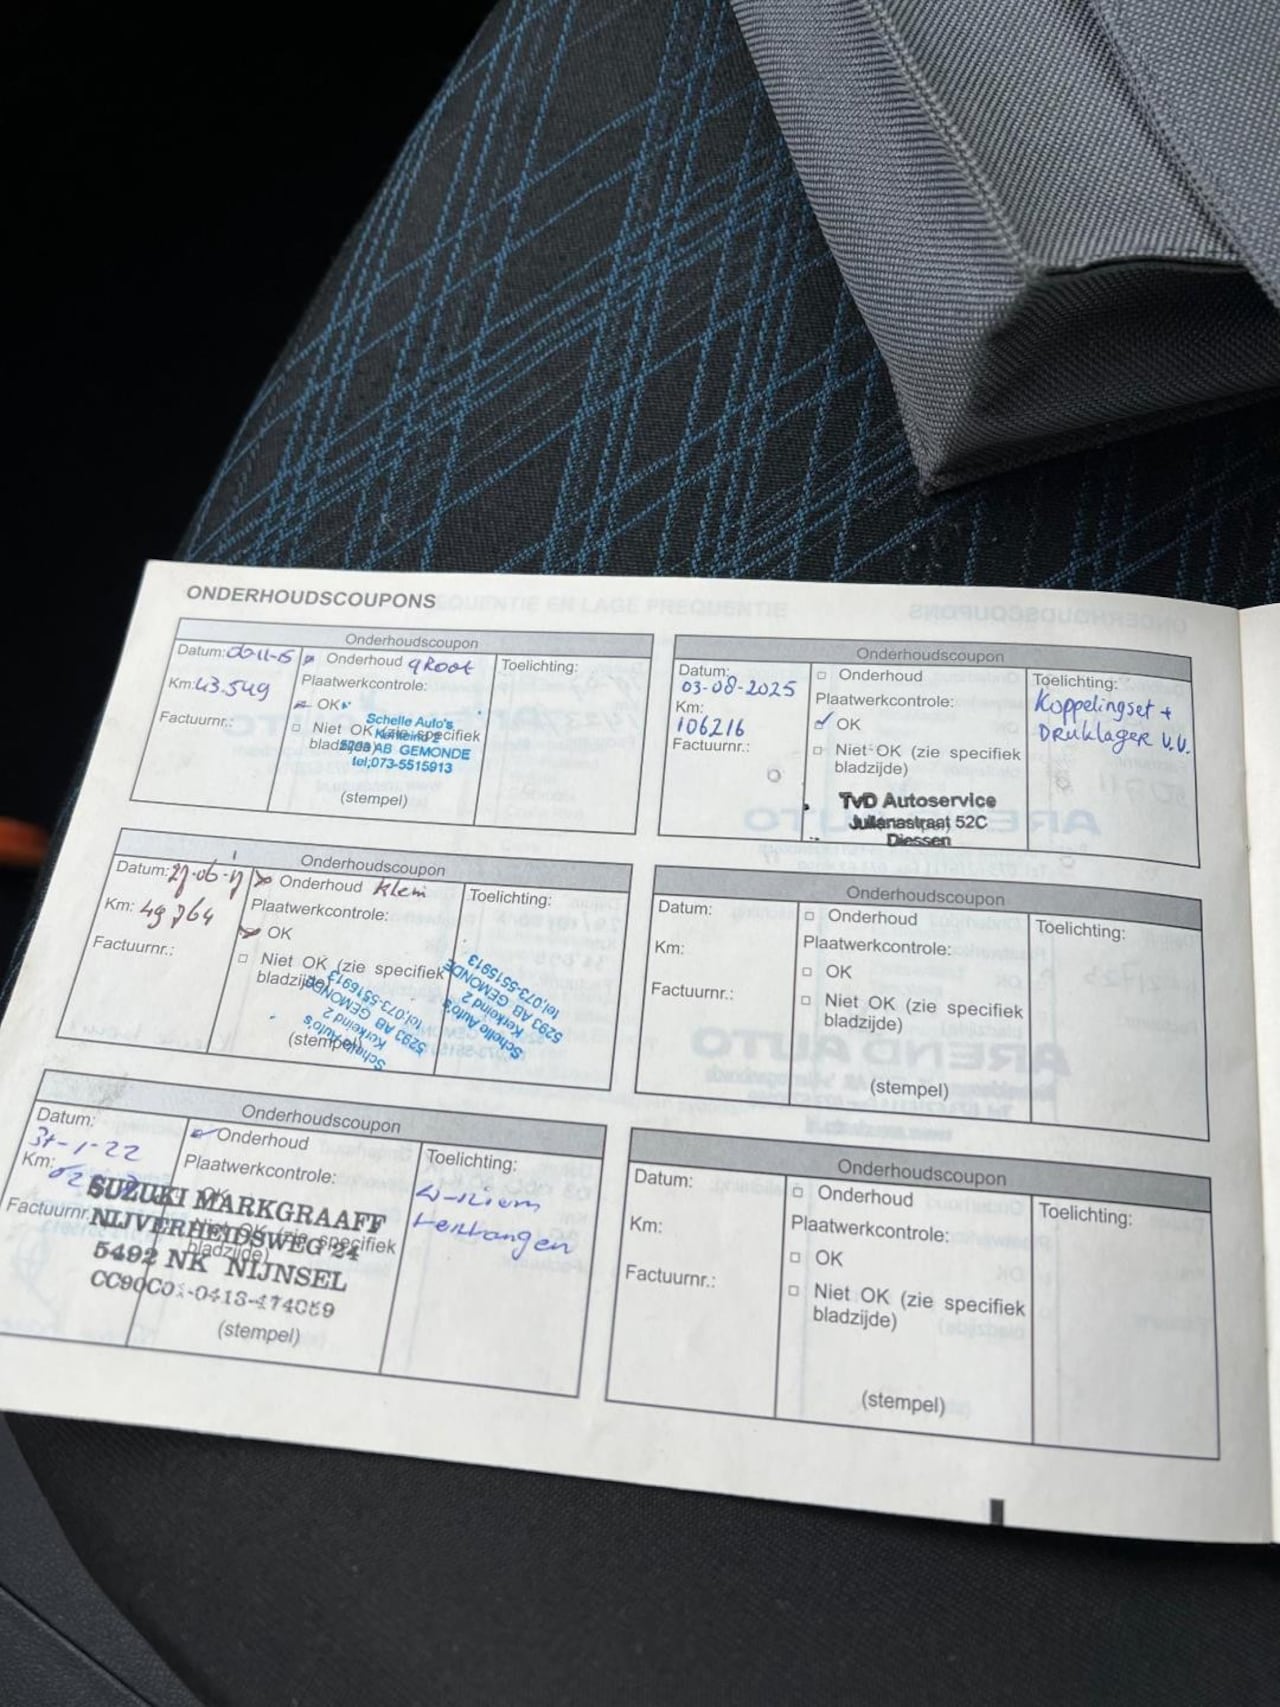 ONDERHOUDSCOUPONS
Onderhoudscoupon
Datum:
Onderhoud groot
Toelichting:
Km: 43.549
Plaatwerkcontrole:
OK
Factuurnr.:
Niet OK (zie specifiek
bladzijde)
Schelle Auto's
Kerkeind 2
5293 AB GEMONDE
tel;073-5515913
(stempel)
Onderhoudscoupon
Datum:
Onderhoud klein
Toelichting:
Km: 49 764
Plaatwerkcontrole:
OK
Factuurnr.:
Niet OK (zie specifiek
bladzijde)
Schelle Auto's
Kerkeind 2
5293 AB GEMONDE
tel;073-5515913
Schelle Auto's
Kerkeind 2
5293 AB GEMONDE
tel;073-5515913
(stempel)
Onderhoudscoupon
Datum:
31-1-22
Onderhoud
Toelichting:
Km:
Plaatwerkcontrole:
OK
Factuurnr.:
Niet OK (zie specifiek
bladzijde)
SUZUKI MARKGRAAFF
NIJVERHEIDSWEG 24
5492 NK NIJNSEL
(stempel)
vervangen
Onderhoudscoupon
Datum:
03-08-2025
Onderhoud
Toelichting:
Km:
106216
Plaatwerkcontrole:
OK
Koppelingset +
Druklager v.v.
Factuurnr.:
Niet OK (zie specifiek
bladzijde)
TvD Autoservice
Julianastraat 52C
Diessen
Onderhoudscoupon
Datum:
Onderhoud
Toelichting:
Km:
Plaatwerkcontrole:
OK
Factuurnr.:
Niet OK (zie specifiek
bladzijde)
(stempel)
Onderhoudscoupon
Datum:
Onderhoud
Toelichting:
Km:
Plaatwerkcontrole:
OK
Factuurnr.:
Niet OK (zie specifiek
bladzijde)
(stempel)